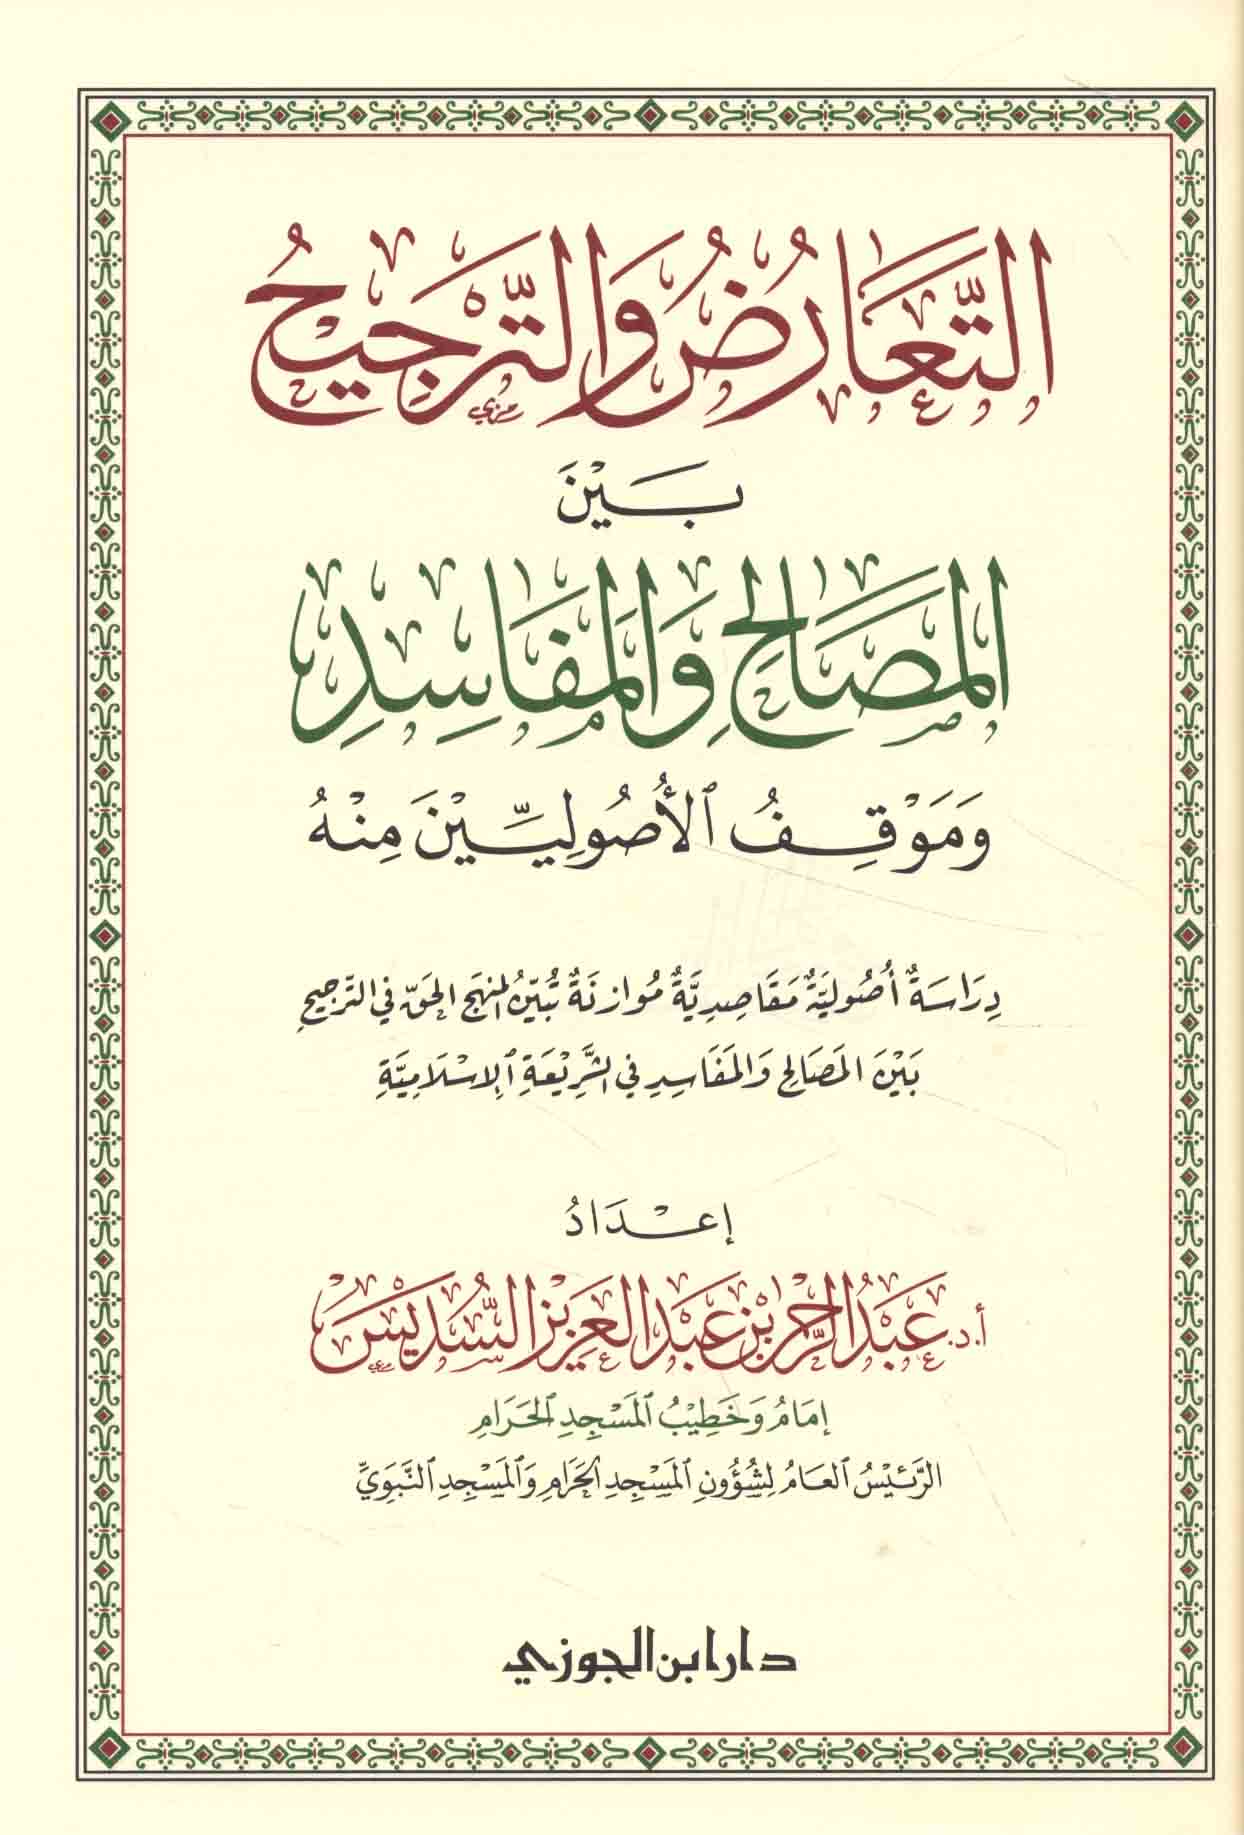 التَّعَارُضُ وَالتَّرْجِيحُ
بَيْنَ
المَصَالِحِ وَالمَفَاسِدِ
وَمَوْقِفُ الأُصُولِيِّينَ مِنْهُ
دِرَاسَةٌ أُصُولِيَّةٌ مَقَاصِدِيَّةٌ مُوازنَةٌ تُبَيِّنُ المنهَجَ الحَقّ في التَّرجيحِ
بَيْنَ المَصَالِحِ وَالمَفَاسِدِ في الشَّرِيْعَةِ الإِسْلَامِيَّةِ
إعْدَادُ
أ.د. عَبْدُ الرَّحْمٰنِ بْنُ عَبْدِ العَزِيْزِ السُّدَيْسُ
إمَامُ وَخَطِيْبُ المَسْجِدِ الحَرَامِ
الرَّئِيْسُ العَامُ لِشُؤُونِ المَسْجِدِ الحَرَامِ وَالمَسْجِدِ النَّبَوِيِّ
دار ابن الجوزي